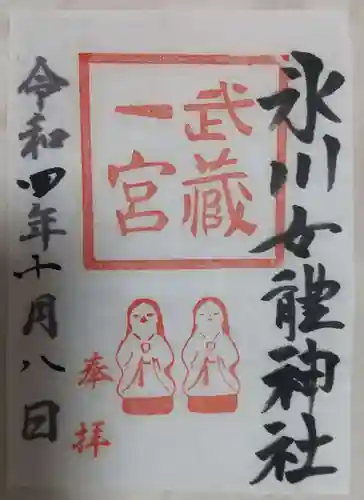 氷川女體神社
武藏
一宮
奉拝
令和四年十月八日